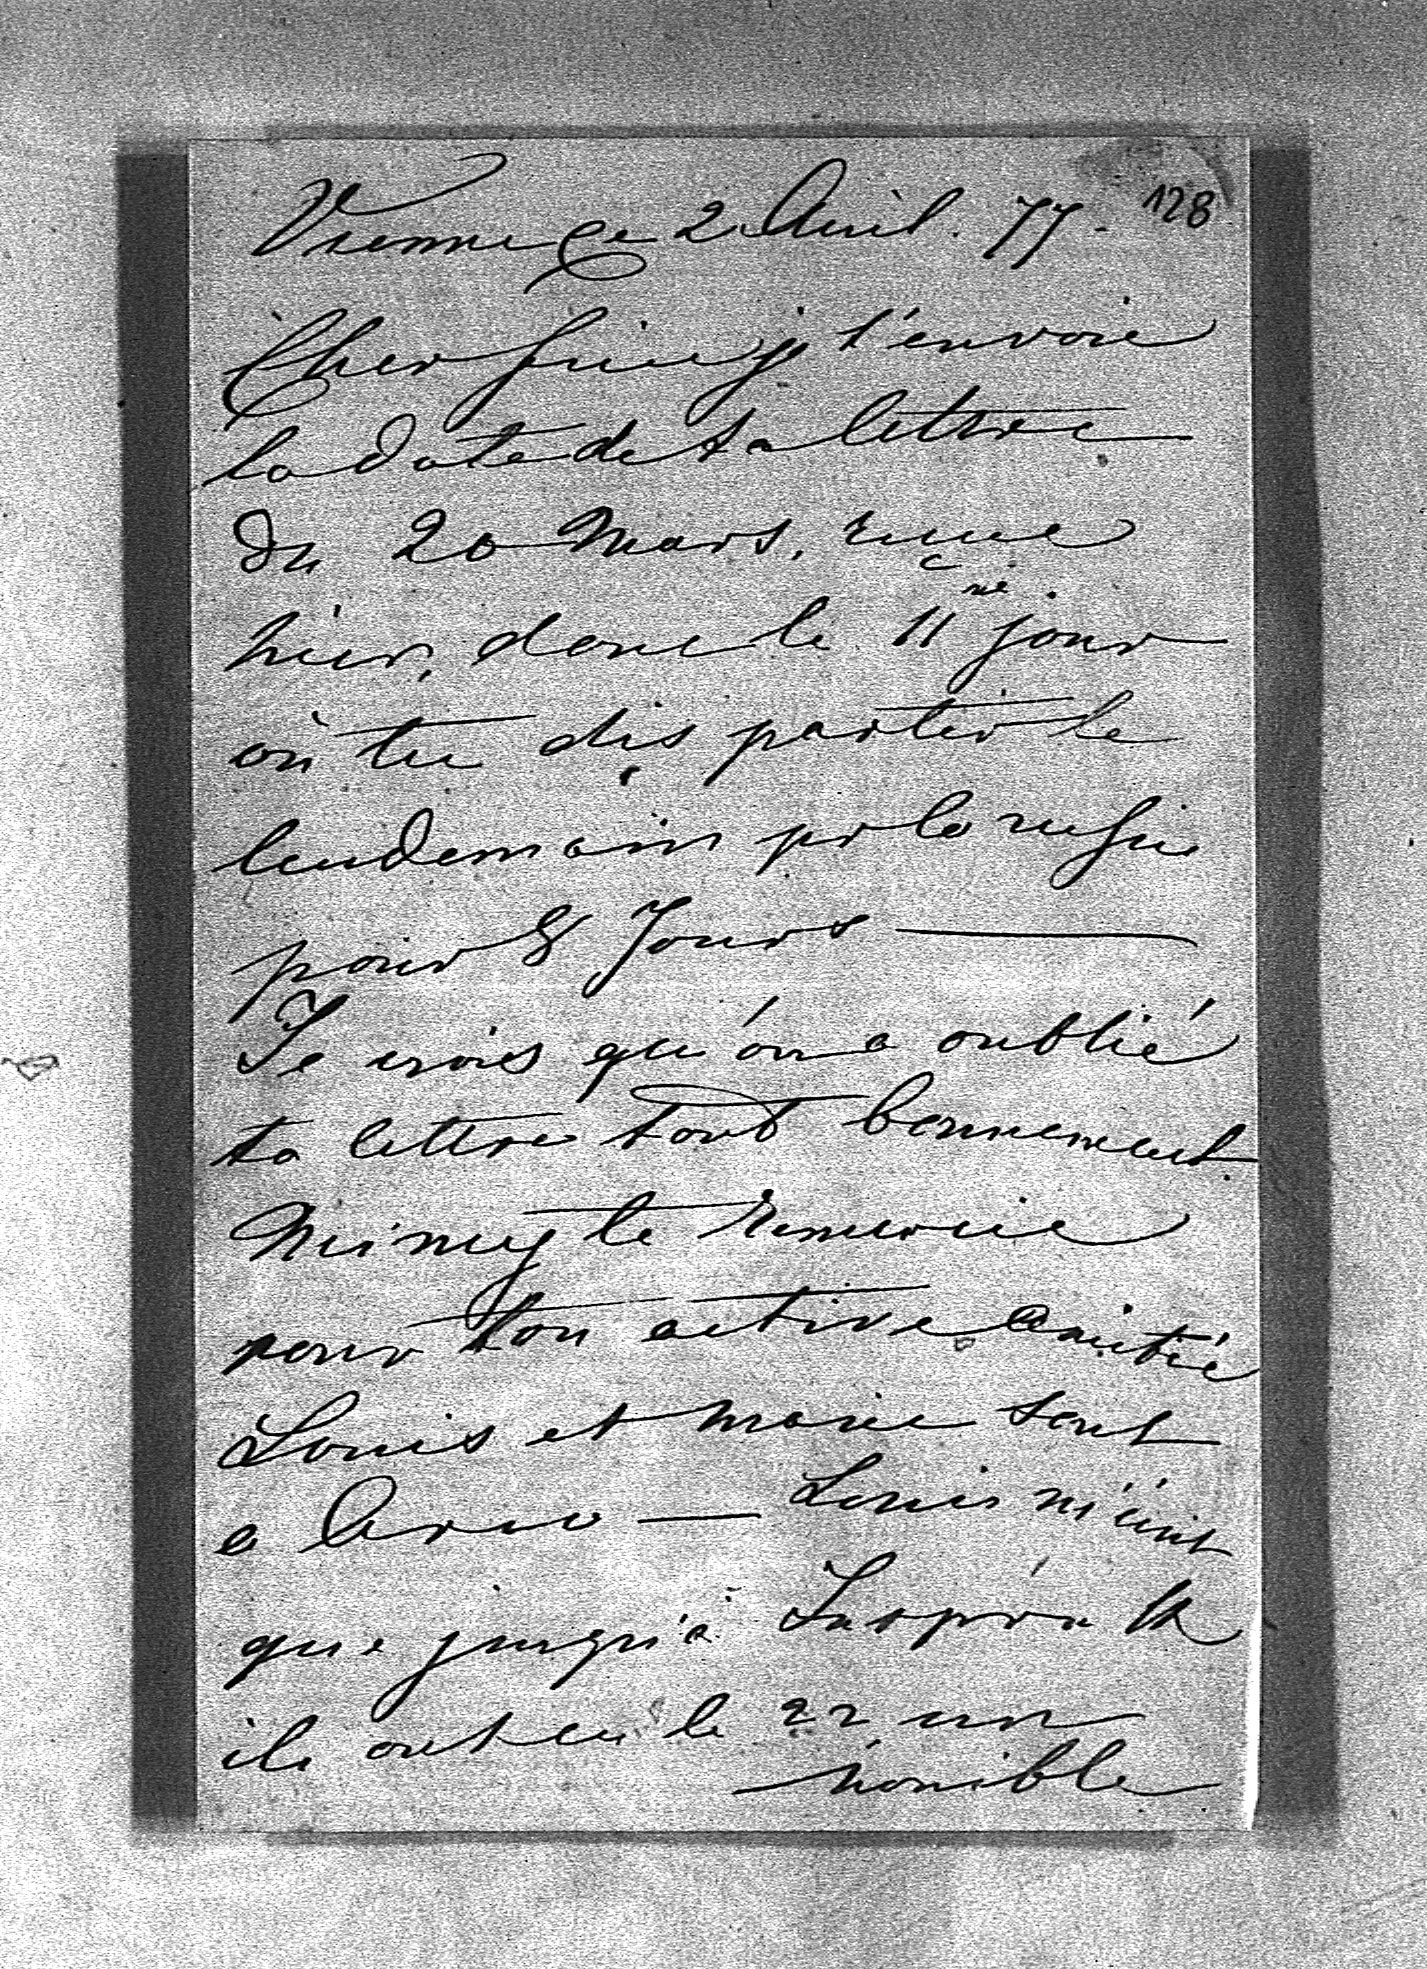 128
Vienne ce 2 Avril. 77.
Cher je t'envoie
la date de ta lettre
du 20 Mars, reçue
hier, donc le 11me jour
où tu dis partir le
lendemain pr la
pour 8 Jours —
Je crois qu'on a oublié
ta lettre tout bonnement.
te remercie
pour ton active amitié
Louis et Marie sont
a Arco — Louis m'écrit
que jusqu'à
ils ont eu le 22 un
horrible